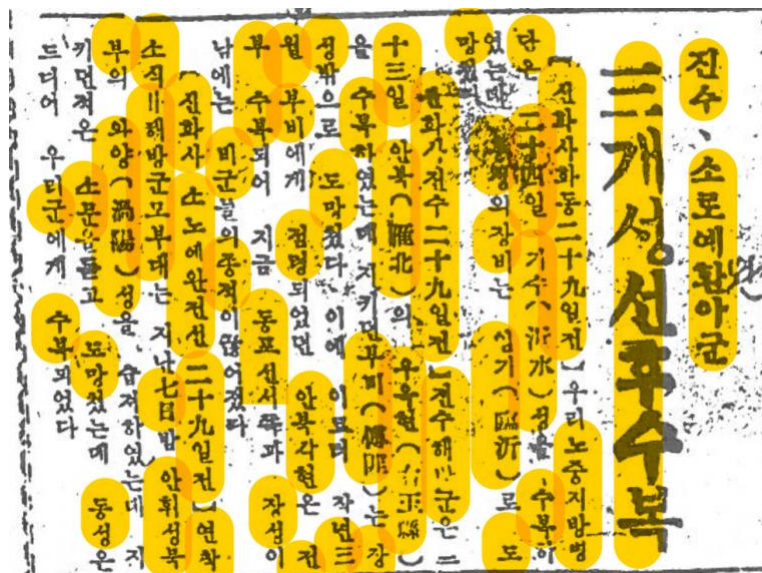 진수、소로예환아군
三개성선후수복
【진화사화동二十九일전】우리노중지방병
단은 二十四일 기수(沂水)성을 수복하
였는데 의장비는 섬기(臨沂)로 도
망쳤다
【진화사진수二十九일전】진수해방군은 二
十三일 안북의 우옥현(右玉縣)
을 수복하였는데 지키던부비(傅匪)는 장
성밖으로 도망쳤다 이에 이르러 작년三
월 부비에게 점령되었던 안북각현은 전
부 수복되어 지금 동포선서쪽과 장성이
남에는 비군들의종적이 없어졌다
【진화사 소노예완전선 二十九일전】연착
소식=해방군모부대는 지난七日밤 안휘성북
부의 와양(渦陽)성을 습격하였는데 지
키던적은 소문을듣고 도망쳤는데 동성은
드디어 우리군에게 수복되었다